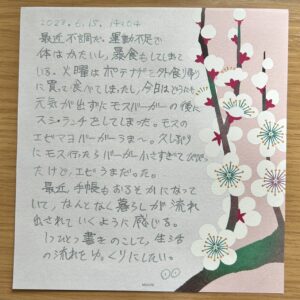 2023.6.15. 14:54
最近不調だ。運動不足で
体はかたいし、暴食もしてしまって
いる。火曜はポテチを外食帰り
に買って食べてしまったし、今日はどうにも
元気が出ずにモスバーガーの後に
スシランチをしてしまった。モスの
エビマヨバーガーうま〜。久しぶり
にモス行ったらバーガー小さすぎて
たけど、エビうまだった。
最近手帳もおろそかになって
いて、なんとなく暮らしが流れ
出されていくように感じる。
1つひとつ書きのこして、生活
の流れをゆっくりにしたい。